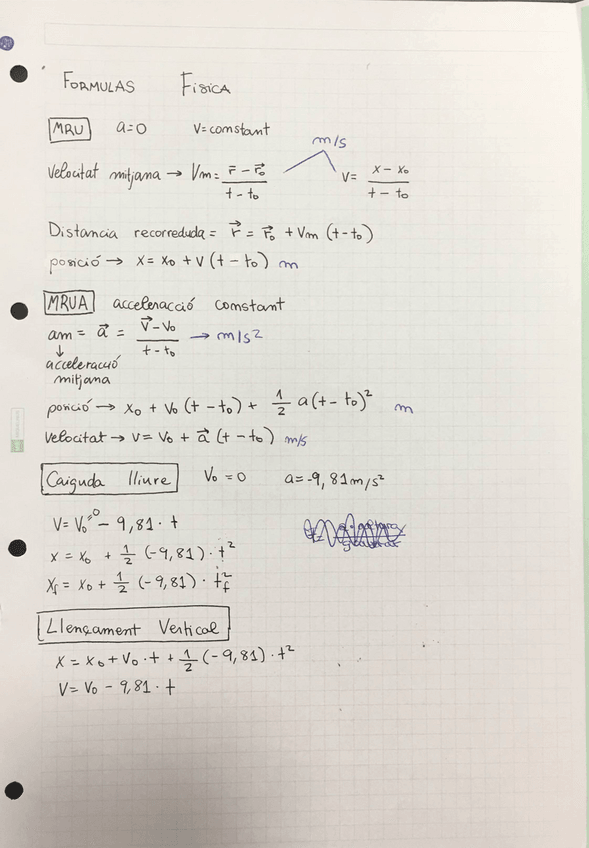 FORMULAS FISICA
MRU a=0 V=constant
m/s
Velocitat mitjana → Vm = (r⃗ - r⃗₀)/(t - t₀) V = (x - x₀)/(t - t₀)
Distancia recorreduda = r⃗ = r⃗₀ + Vm (t - t₀)
posició → x = x₀ + V (t - t₀) m
MRUA acceleracció constant
am = a⃗ = (V⃗ - V₀)/(t - t₀) → m/s²
↓
acceleració
mitjana
posició → x₀ + V₀ (t - t₀) + 1/2 a (t - t₀)² m
Velocitat → V = V₀ + a⃗ (t - t₀) m/s
Caiguda lliure V₀ = 0 a = -9,81 m/s²
V = V₀⁼⁰ - 9,81 · t
x = x₀ + 1/2 (-9,81) · t²
X_f = x₀ + 1/2 (-9,81) · t_f²
Llençament Vertical
X = x₀ + V₀ · t + 1/2 (-9,81) · t²
V = V₀ - 9,81 · t